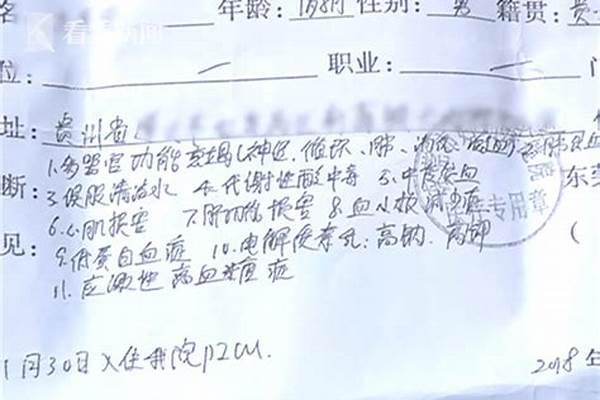 名 年龄：1岁8月 性别：男 籍贯：贵
看看新闻
位： 职业：
址：贵州省
1.多器官功能衰竭（神经、循环、肺、消化、
断：3.误服清洁水 4.代谢性酸中毒 5.中度贫血 东莞
6.心肌损害 7.肝功能损害 8.血小板减少症 专用章
见：9.低蛋白血症 10.电解质紊乱：高钠、高钾 （
11.应激性高血糖症
1月30日入住我院PICU. 2018年